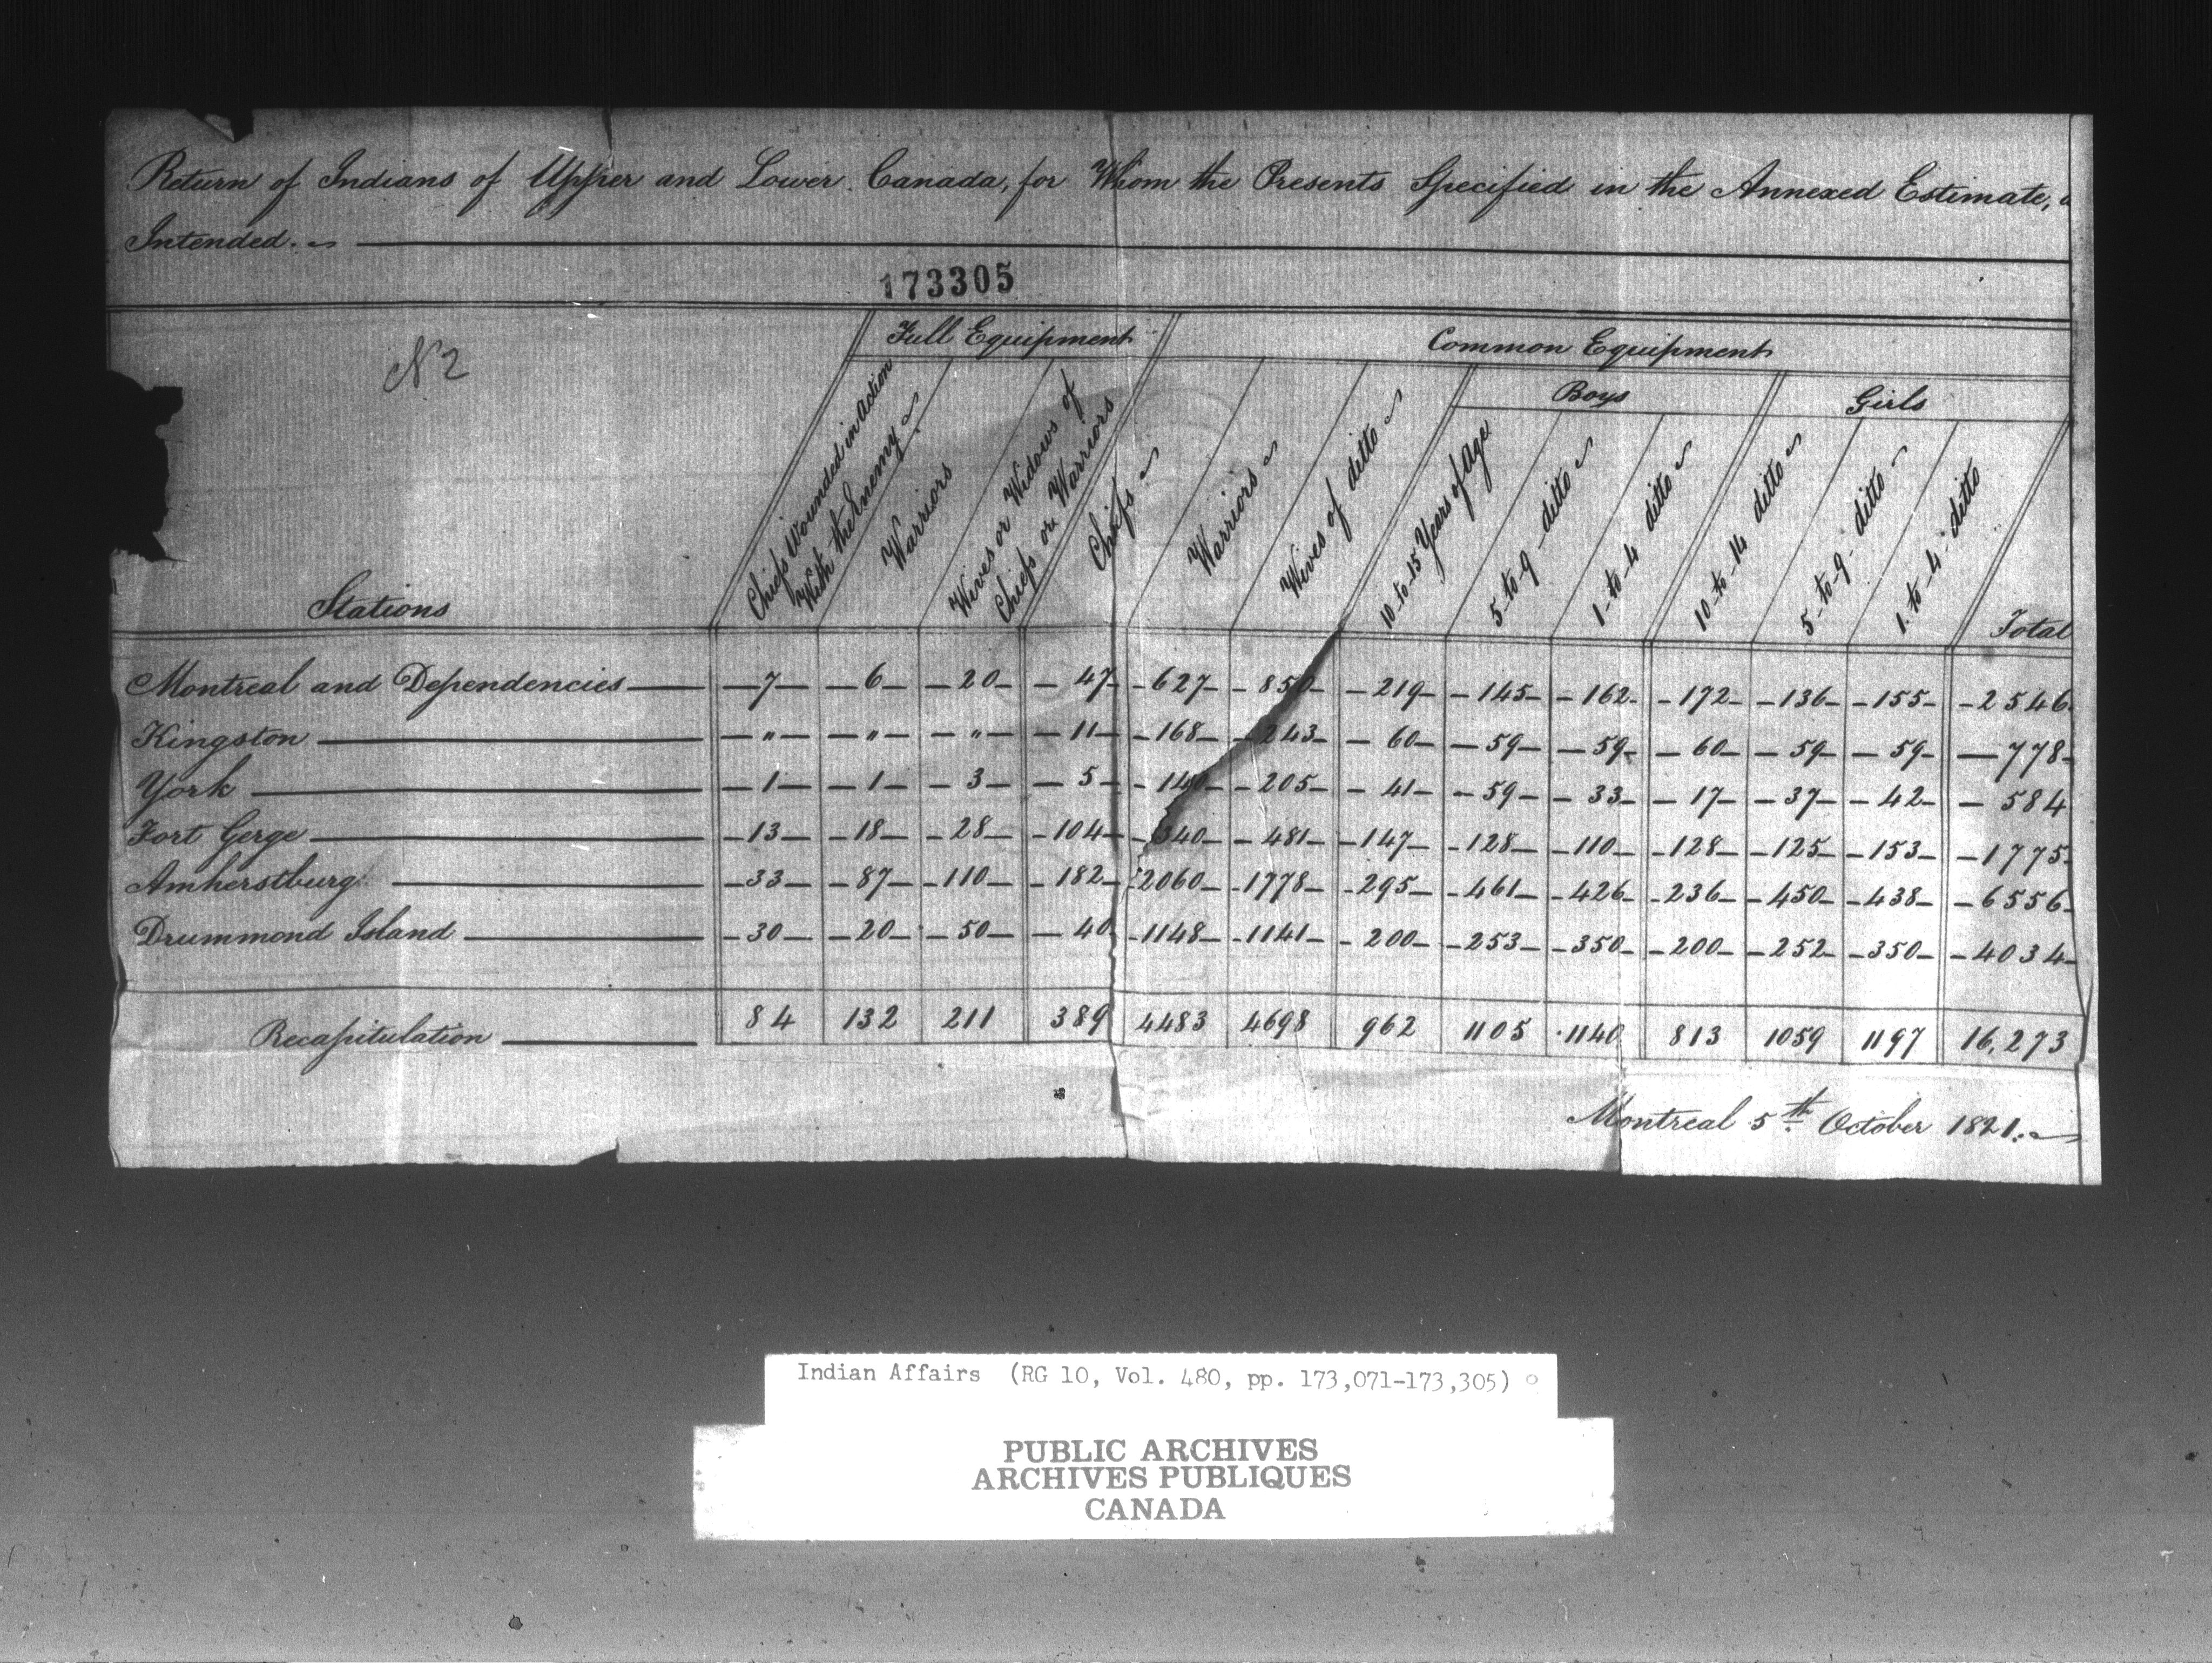 Return of Indians of Upper and Lower Canada, for Whom the Presents Specified in the Annexed Estimate,
Intended.
173305
N 2
Full Equipment
Common Equipment
Boys
Girls
Stations
Chiefs Wounded in Action With the Enemy
Warriors
Wives or Widows of Chiefs or Warriors
Chiefs
Warriors
Wives of ditto
10 to 15 Years of Age
5 to 9 ditto
1 to 4 ditto
10 to 14 ditto
5 to 9 ditto
1 to 4 ditto
Total
Montreal and Dependencies 7 6 20 47 627 850 219 145 162 172 136 155 2546
Kingston " " " 11 168 243 60 59 59 60 59 59 778
York 1 1 3 5 140 205 41 59 33 17 37 42 584
Fort Gerge 13 18 28 104 340 481 147 128 110 128 125 153 1775
Amherstburg 33 87 110 182 2060 1778 295 461 426 236 450 438 6556
Drummond Island 30 20 50 40 1148 1141 200 253 350 200 252 350 4034
Recapitulation 84 132 211 389 4483 4698 962 1105 1140 813 1059 1197 16,273
Montreal 5th October 1821.
Indian Affairs (RG 10, Vol. 480, pp. 173,071-173,305)
PUBLIC ARCHIVES
ARCHIVES PUBLIQUES
CANADA